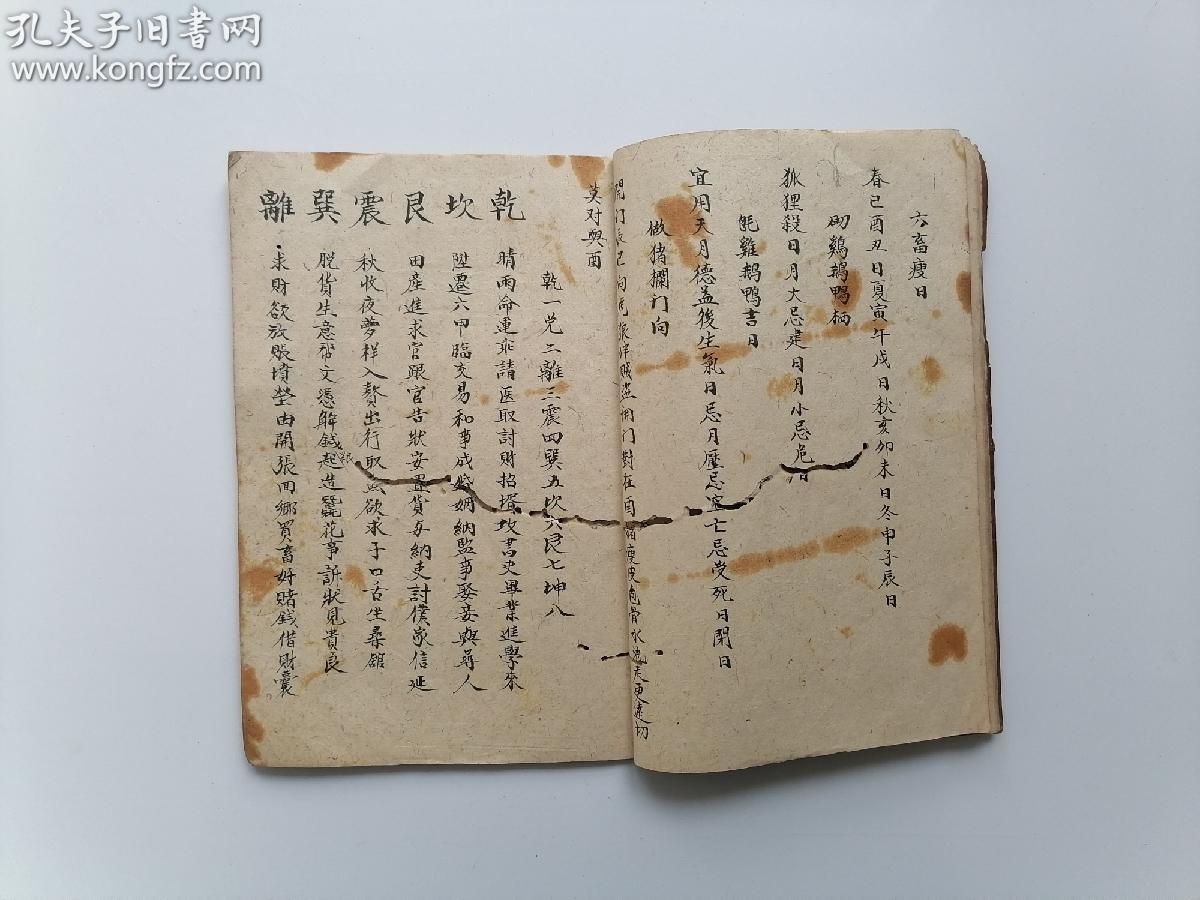 孔夫子旧书网
www.kongfz.com
六畜瘦日
春巳酉丑日夏寅午戌日秋亥卯未日冬申子辰日
砌鷄鵝鴨栖
狐狸殺日月大忌建日月小忌危日
毦雞鵝鴨吉日
宜用天月德益後生氣日忌月厭忌宜亡忌受死日閉日
做猪欄门向
開门辰巳向
賊盗開门對在酉
莫对與酉
乾一兑二離三震四巽五坎六艮七坤八
乾 晴雨命運並請医取討財招壻攻書史畢業進學來
坎 陞遷六甲臨交易和事成婚姻納監事娶妾與尋人
艮 田產進求官跟官告狀安置貨与納吏討僕家信延
震 秋收夜夢祥入贅出行取 欲求子口舌坐桑舘
巽 脫貨生意帮文憑解錢粮起造 花事訴狀見貴良
離 求財欲放賬墳塋由開張回鄉買畜好賭錢借財囊